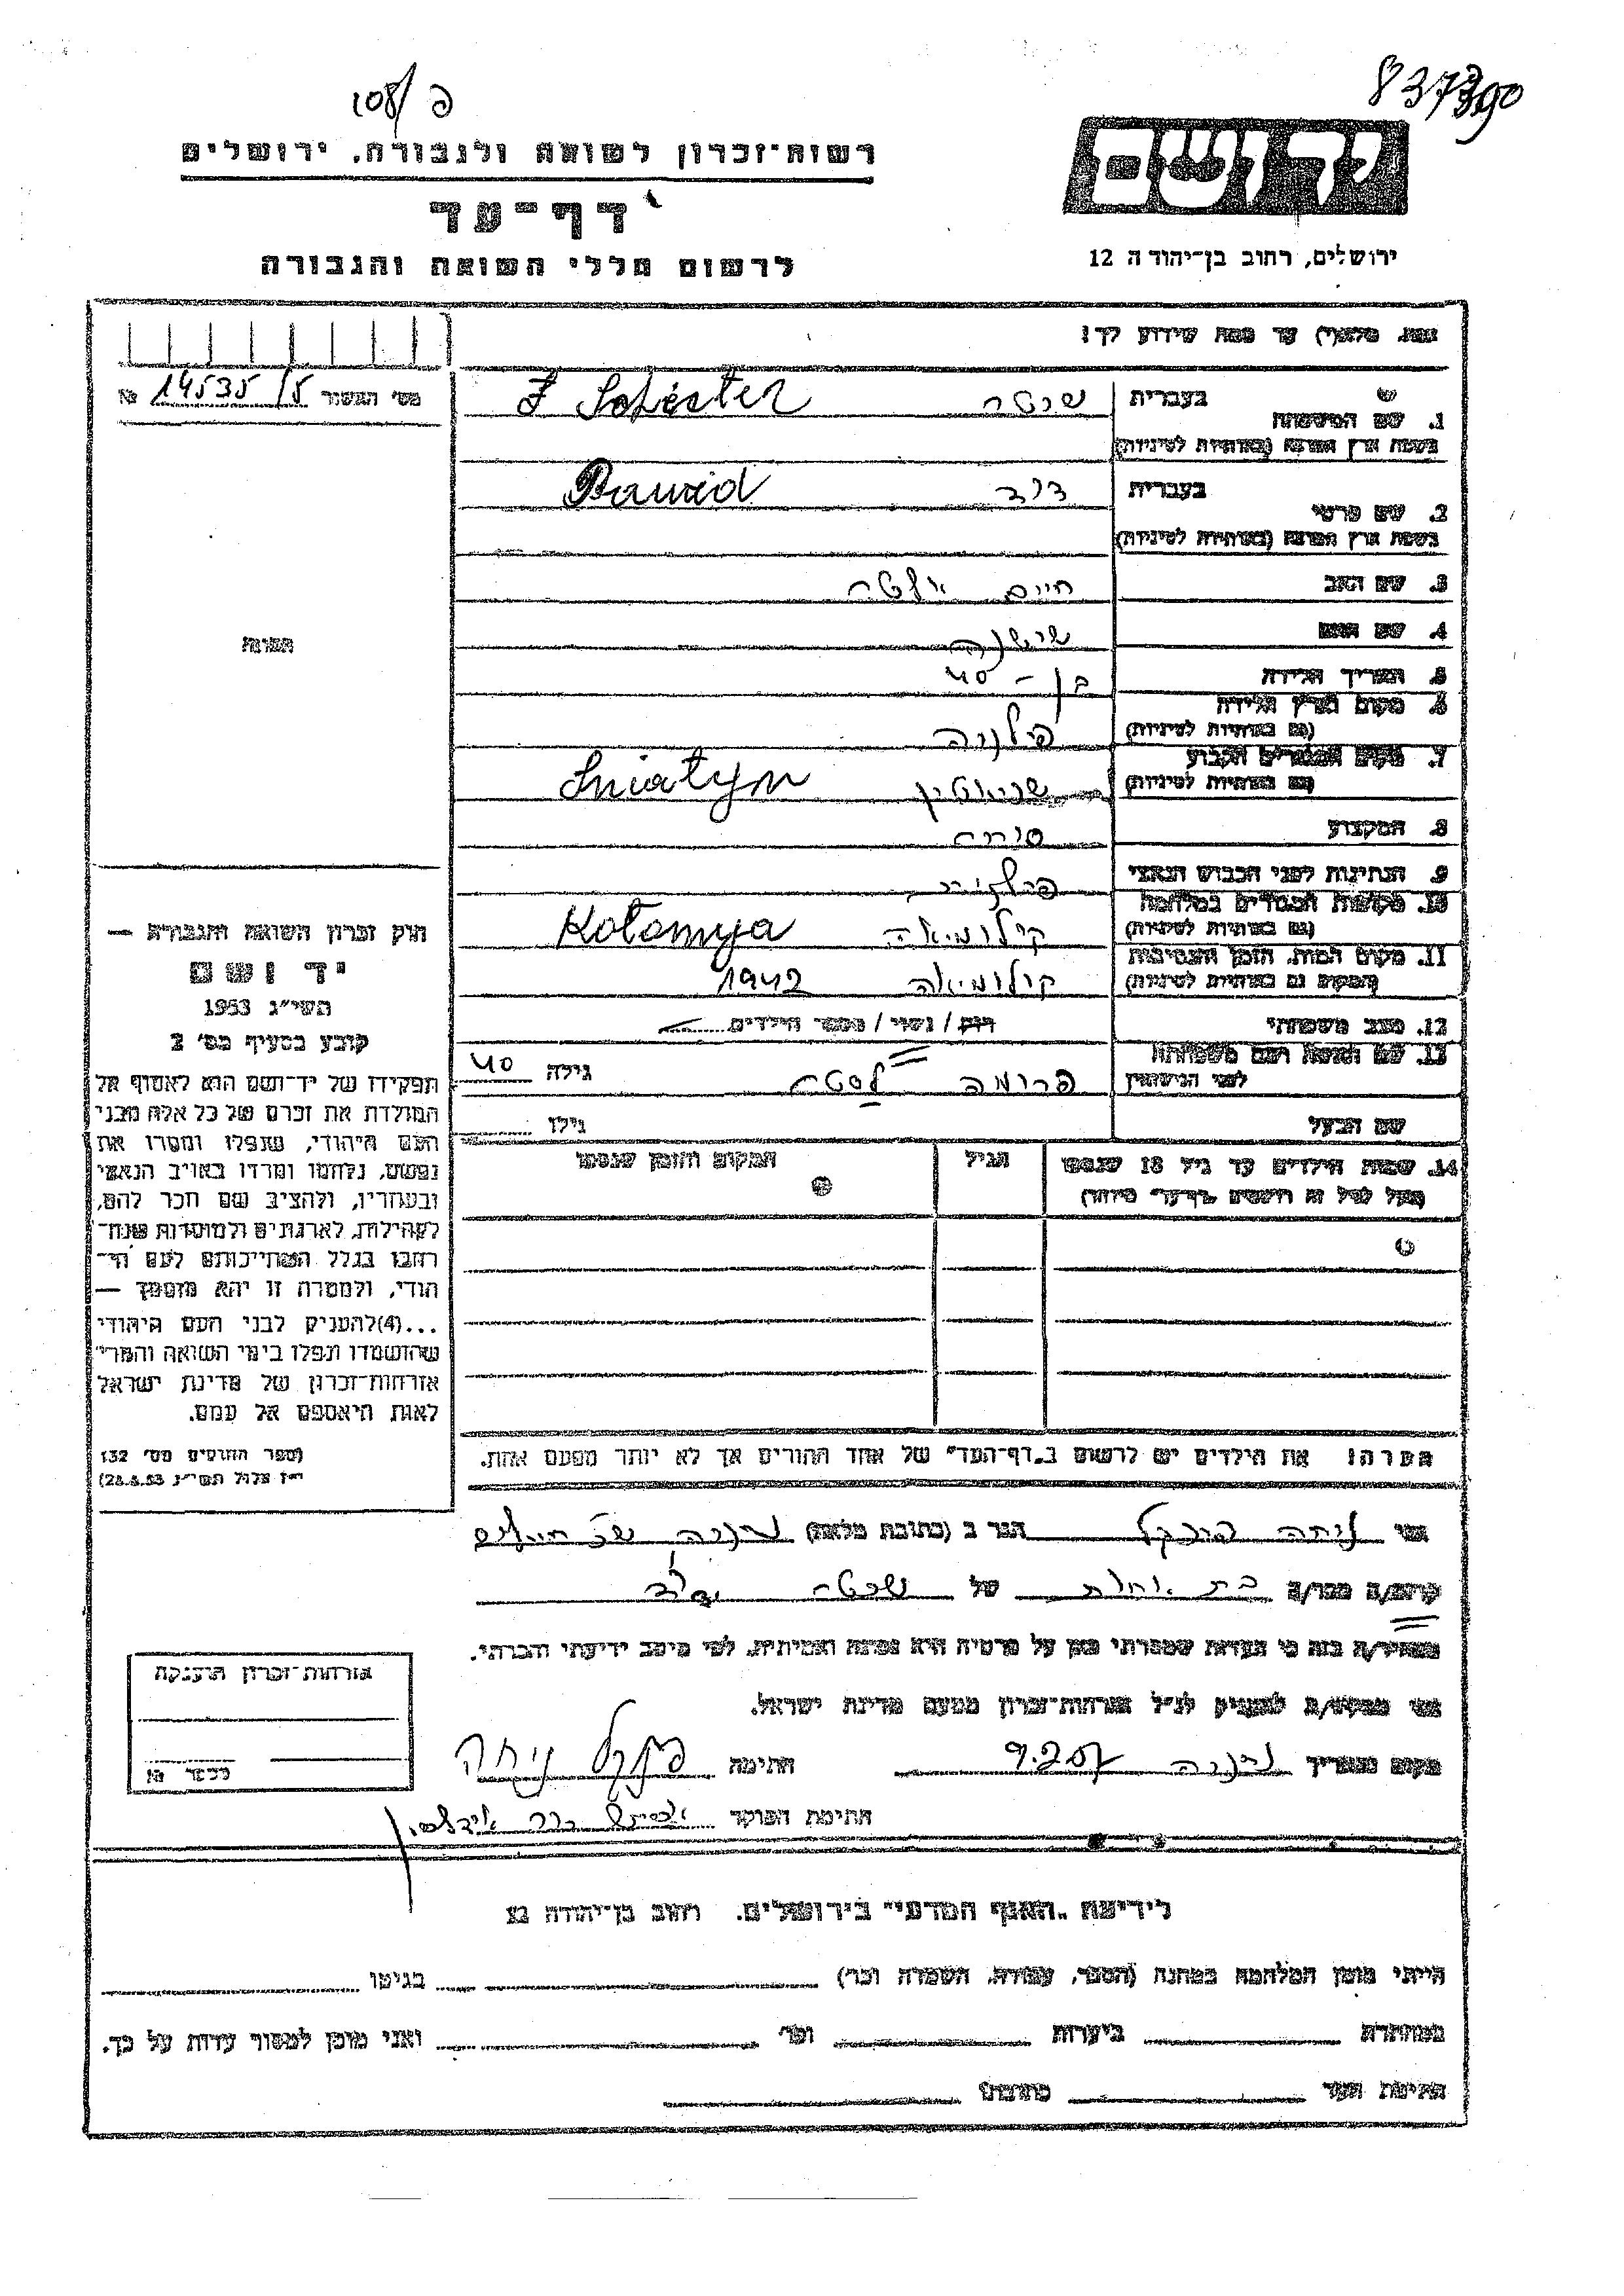 837390
פ 108/
רשות־זכרון לשואה ולגבורה, ירושלים
דף־עד
לרשום חללי השואה והגבורה
יד ושם
ירושלים, רחוב בן־יהודה 12
נא, מלא(י) עד כמה שידוע לך!
מס׳ המשור 14535/5 №
1. שם המשפחה
בעברית
Schester
בשפת ארץ המוצא (באותיות לטיניות)
2. שם פרטי
בעברית דוד Dawid
בשפת ארץ המוצא (באותיות לטיניות)
3. שם האב חיים אלטר
4. שם האם
5. תאריך הלידה בן – 40
6. מקום וארץ הלידה
(גם באותיות לטיניות) פולניה
7. מקום המגורים הקבוע
(גם באותיות לטיניות) שניאטין Sniatyn
8. המקצוע סוחר
9. הנתינות לפני הכבוש הנאצי פולנית
10. מקומות המגורים במלחמה
(גם באותיות לטיניות) קולומיאה Kołomyja
11. מקום המות, הזמן והנסיבות
(המקום גם באותיות לטיניות) קולומיאה 1942
12. מצב משפחתי רוק / נשוי / מספר הילדים
13. שם האשה ושם משפחתה
לפני הנישואין פרומה גילה 40
שם הבעל גילו
14. שמות הילדים עד גיל 18 שנספו הגיל המקום והזמן שנספו
התמונה
חוק זכרון השואה והגבורה —
יד ושם
תשי״ג 1953
קובע בסעיף מס׳ 2
תפקידו של יד־ושם הוא לאסוף אל
המולדת את זכרם של כל אלה מבני
העם היהודי, שנפלו ומסרו את
נפשם, נלחמו ומרדו באויב הנאצי
ובעוזריו, ולהציב שם וזכר להם,
לקהילות, לארגונים ולמוסדות שנח־
רבו בגלל השתייכותם לעם הי־
הודי, ולמטרה זו יהא מוסמך —
...(4)להעניק לבני העם היהודי
שהושמדו ונפלו בימי השואה והמרי
אזרחות־זכרון של מדינת ישראל
לאות היאספם אל עמם.
(ספר החוקים מס׳ 132
י״ז אלול תשי״ג 28.8.53)
הערה! את הילדים יש לרשום ב„דף־העד״ של אחד ההורים אך לא יותר מפעם אחת.
אני הגר ב (כתובת מלאה)
קרוב/ה מכר/ה של
מצהיר/ה בזה כי העדות שמסרתי כאן על פרטיה היא נכונה ואמיתית, לפי מיטב ידיעתי והכרתי.
אני מבקש/ת להעניק לנ״ל אזרחות־זכרון מטעם מדינת ישראל.
מקום ותאריך חתימה
חתימת הפוקד
אזרחות־זכרון הוענקה
לידיעת „האגף המדעי״ בירושלים. רחוב בן־יהודה
הייתי בזמן המלחמה במחנה (הסגר, עבודה, השמדה וכו׳) בגיטו
במחתרת ביערות וכו׳ ואני מוכן למסור עדות על כך.
חתימת העד כתובתו